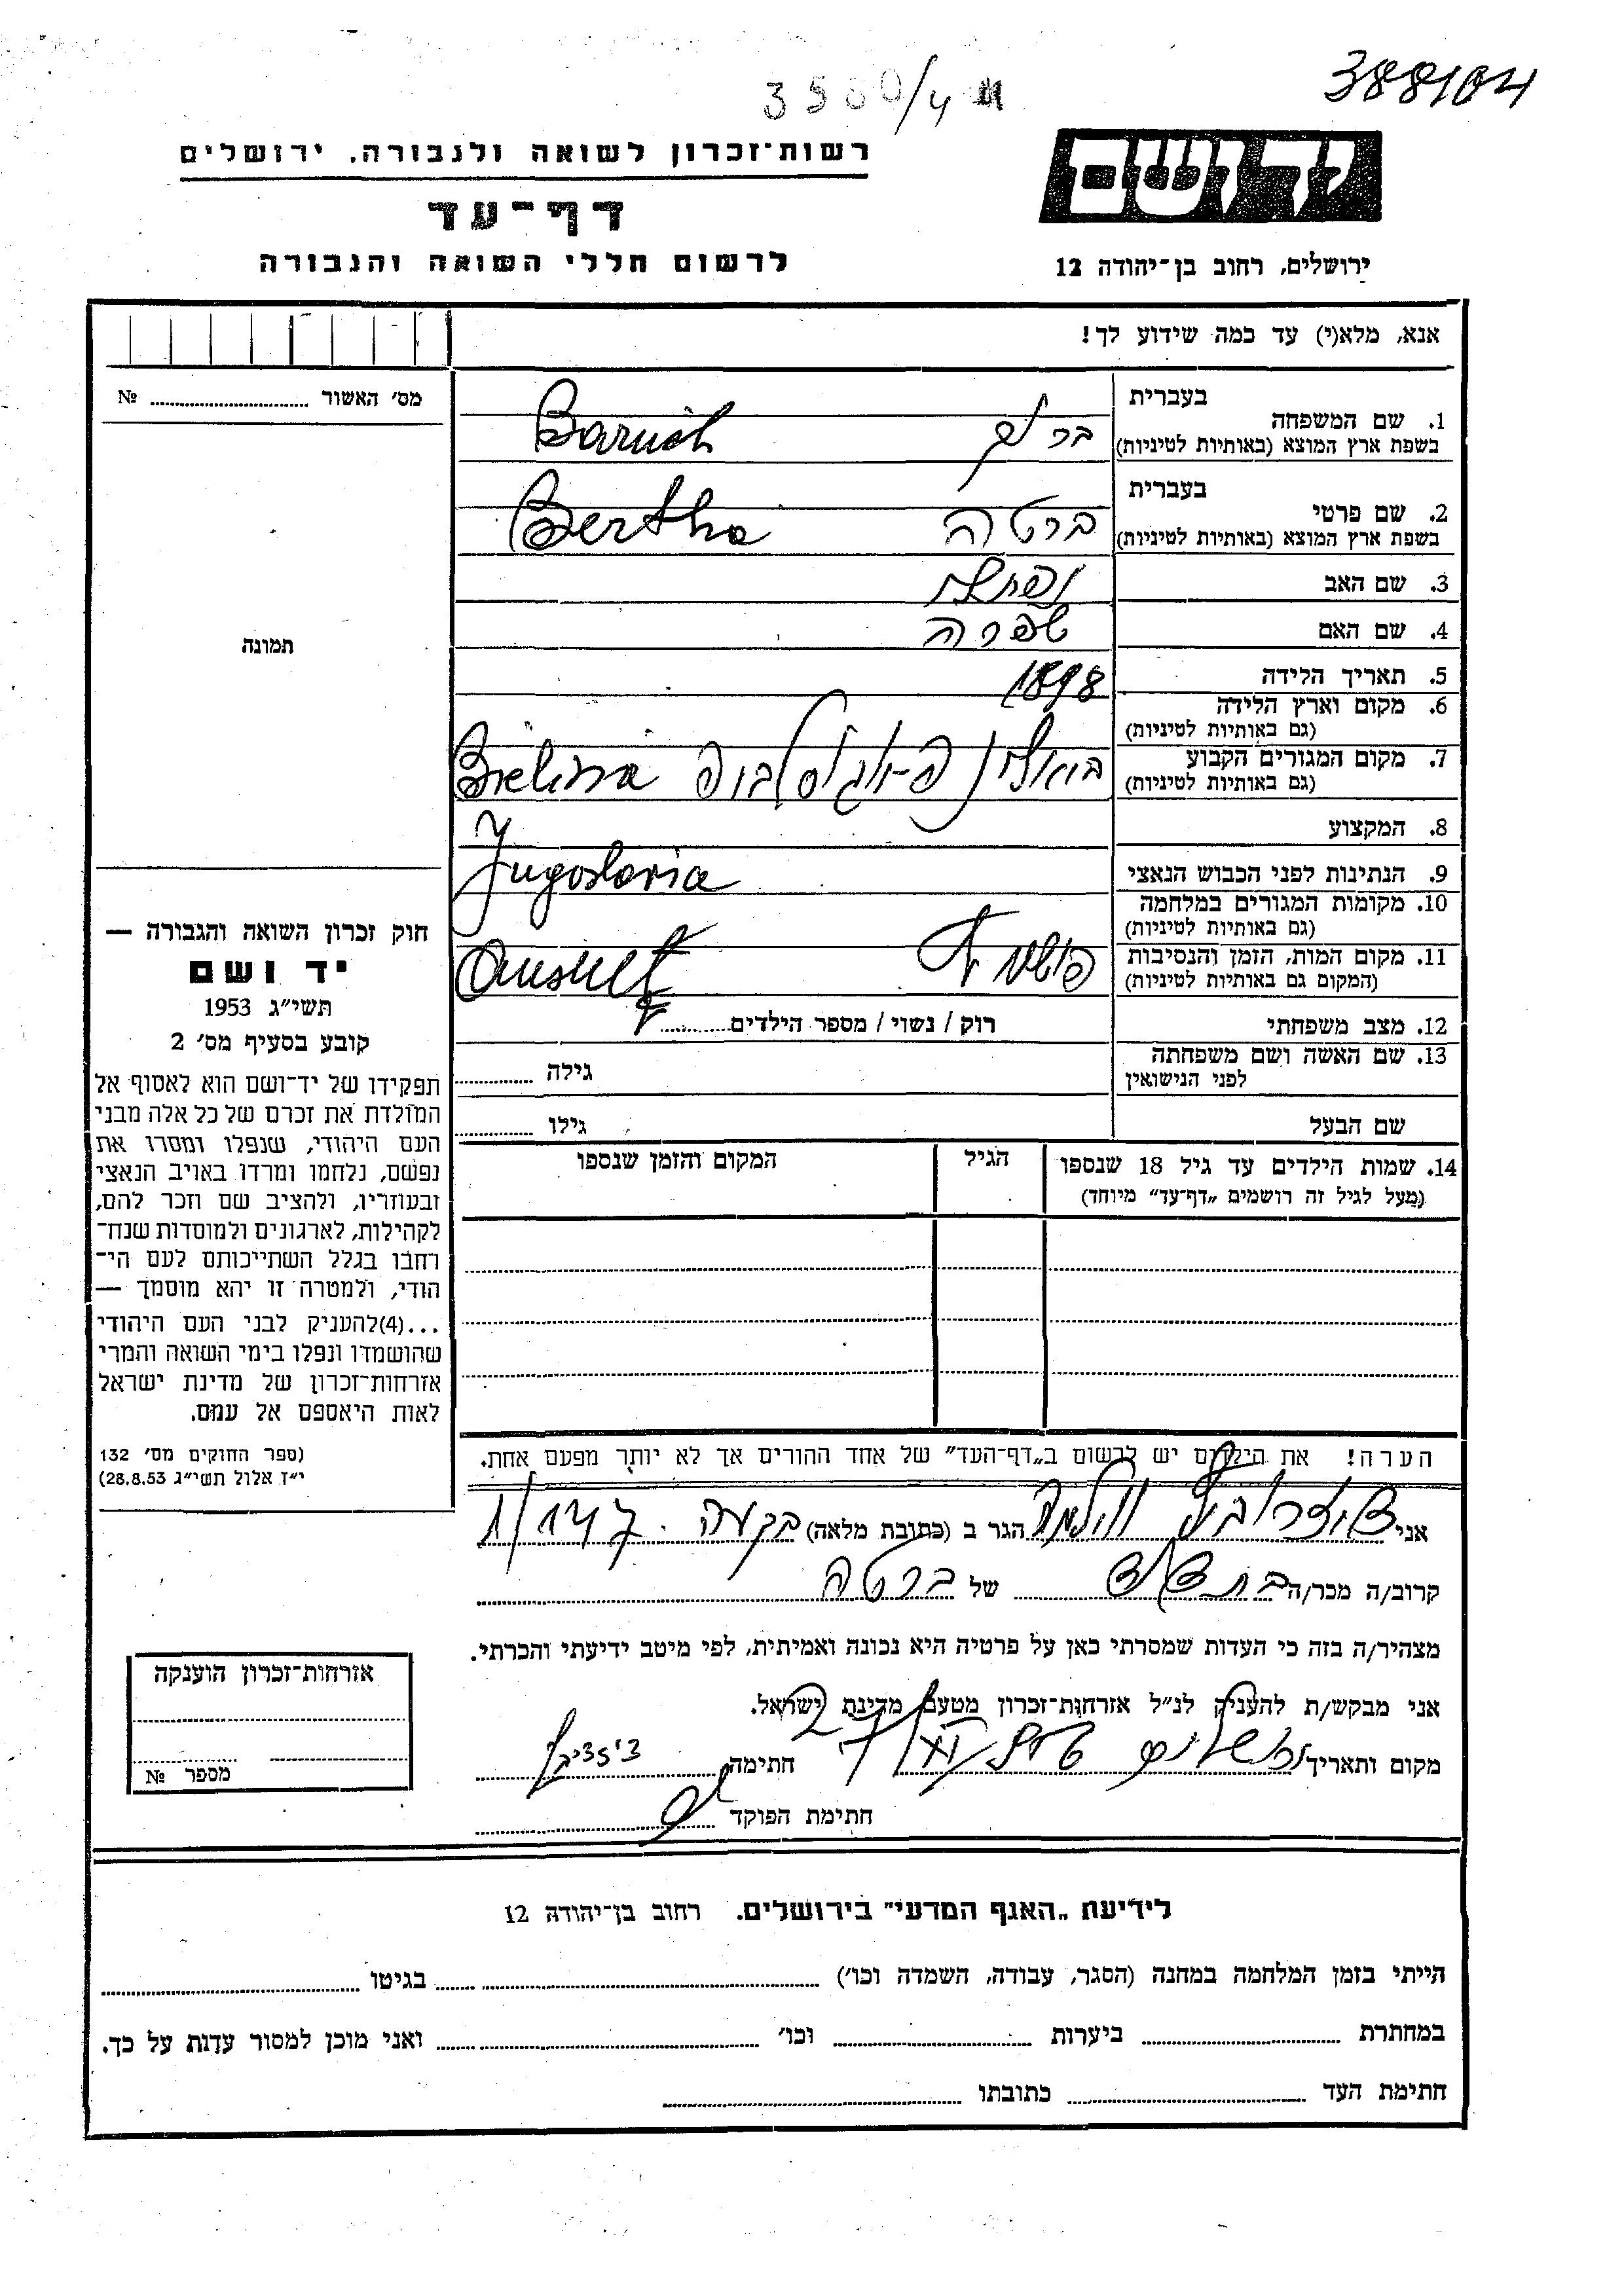 388104
3500/4
רשות־זכרון לשואה ולגבורה. ירושלים
דף־עד
לרשום חללי השואה והגבורה
יד ושם
ירושלים, רחוב בן־יהודה 12
אנא, מלא(י) עד כמה שידוע לך!
מס׳ האשור № 
תמונה
חוק זכרון השואה והגבורה —
יד ושם
תשי״ג 1953
קובע בסעיף מס׳ 2
תפקידו של יד־ושם הוא לאסוף אל
המולדת את זכרם של כל אלה מבני
העם היהודי, שנפלו ומסרו את
נפשם, נלחמו ומרדו באויב הנאצי
ובעוזריו, ולהציב שם וזכר להם,
לקהילות, לארגונים ולמוסדות שנח־
רחבו בגלל השתייכותם לעם הי־
הודי, ולמטרה זו יהא מוסמך —
...(4)להעניק לבני העם היהודי
שהושמדו ונפלו בימי השואה והמרי
אזרחות־זכרון של מדינת ישראל
לאות היאספם אל עמם.
(ספר החוקים מס׳ 132
י״ז אלול תשי״ג 28.8.53)
בעברית
1. שם המשפחה ברוך Baruch
בשפת ארץ המוצא (באותיות לטיניות)
בעברית
2. שם פרטי ברטה Bertha
בשפת ארץ המוצא (באותיות לטיניות)
3. שם האב
4. שם האם שפרה
5. תאריך הלידה 1898
6. מקום וארץ הלידה
(גם באותיות לטיניות)
7. מקום המגורים הקבוע
(גם באותיות לטיניות)
8. המקצוע
9. הנתינות לפני הכבוש הנאצי Jugoslavia
10. מקומות המגורים במלחמה
(גם באותיות לטיניות)
11. מקום המות, הזמן והנסיבות
(המקום גם באותיות לטיניות)
12. מצב משפחתי רוק / נשוי / מספר הילדים
13. שם האשה ושם משפחתה
לפני הנישואין גילה
שם הבעל גילו
14. שמות הילדים עד גיל 18 שנספו הגיל המקום והזמן שנספו
(מעל לגיל זה רושמים „דף־עד״ מיוחד)
הערה! את הילדים יש לרשום ב„דף־העד״ של אחד ההורים אך לא יותר מפעם אחת.
אני הגר ב (כתובת מלאה) בקעה 147/1
קרוב/ה מכר/ה בת דוד של ברטה
מצהיר/ה בזה כי העדות שמסרתי כאן על פרטיה היא נכונה ואמיתית, לפי מיטב ידיעתי והכרתי.
אני מבקש/ת להעניק לנ״ל אזרחות־זכרון מטעם מדינת ישראל.
מקום ותאריך ירושלים חתימה
חתימת הפוקד
אזרחות־זכרון הוענקה
מספר №
לידיעת „האגף המדעי״ בירושלים. רחוב בן־יהודה 12
הייתי בזמן המלחמה במחנה (הסגר, עבודה, השמדה וכו׳) בגיטו
במחתרת ביערות וכו׳ ואני מוכן למסור עדות על כך.
חתימת העד כתובתו